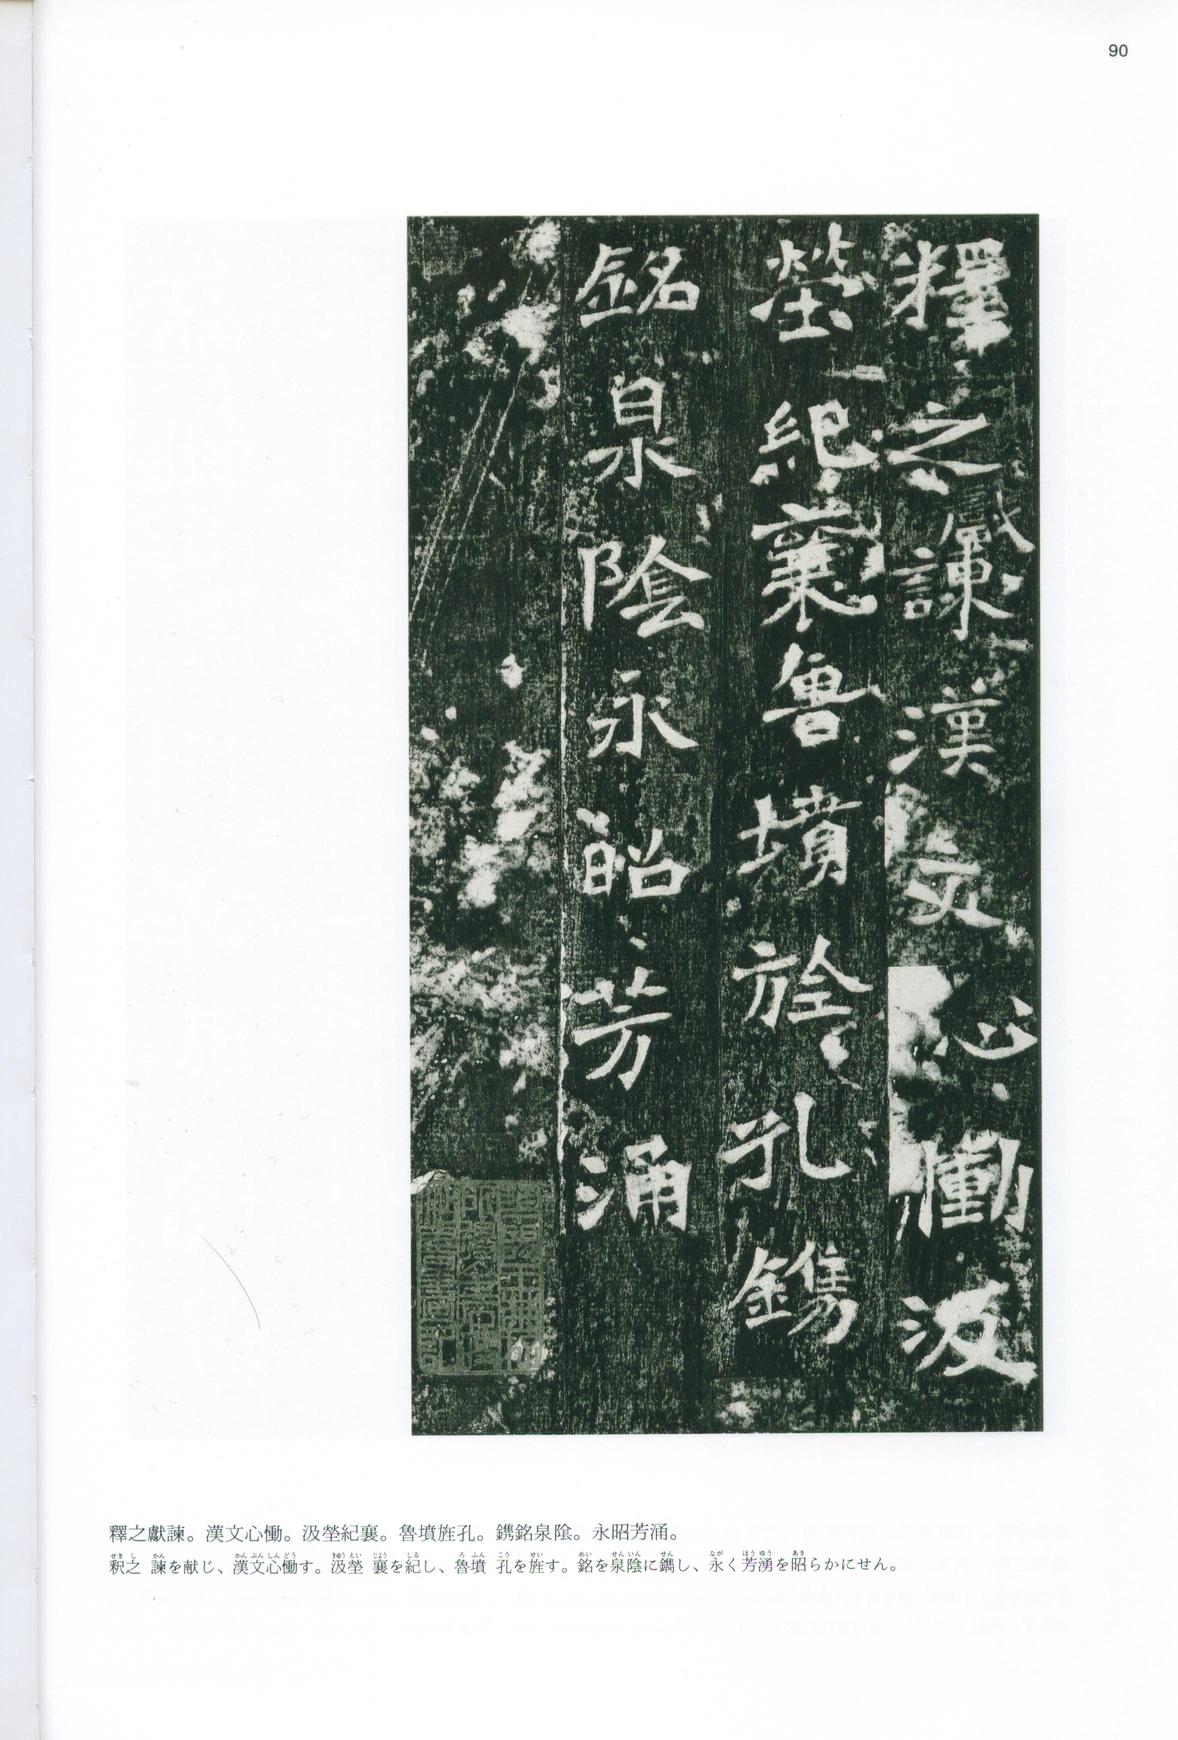 90
釋之獻諫漢文心慟汲
塋紀襄魯墳旌孔鐫
銘泉陰永昭芳涌
釋之獻諫。漢文心慟。汲塋紀襄。魯墳旌孔。鐫銘泉陰。永昭芳涌。
釈之 諫を献じ、漢文心慟す。汲塋 襄を紀し、魯墳 孔を旌す。銘を泉陰に鐫し、永く芳湧を昭らかにせん。